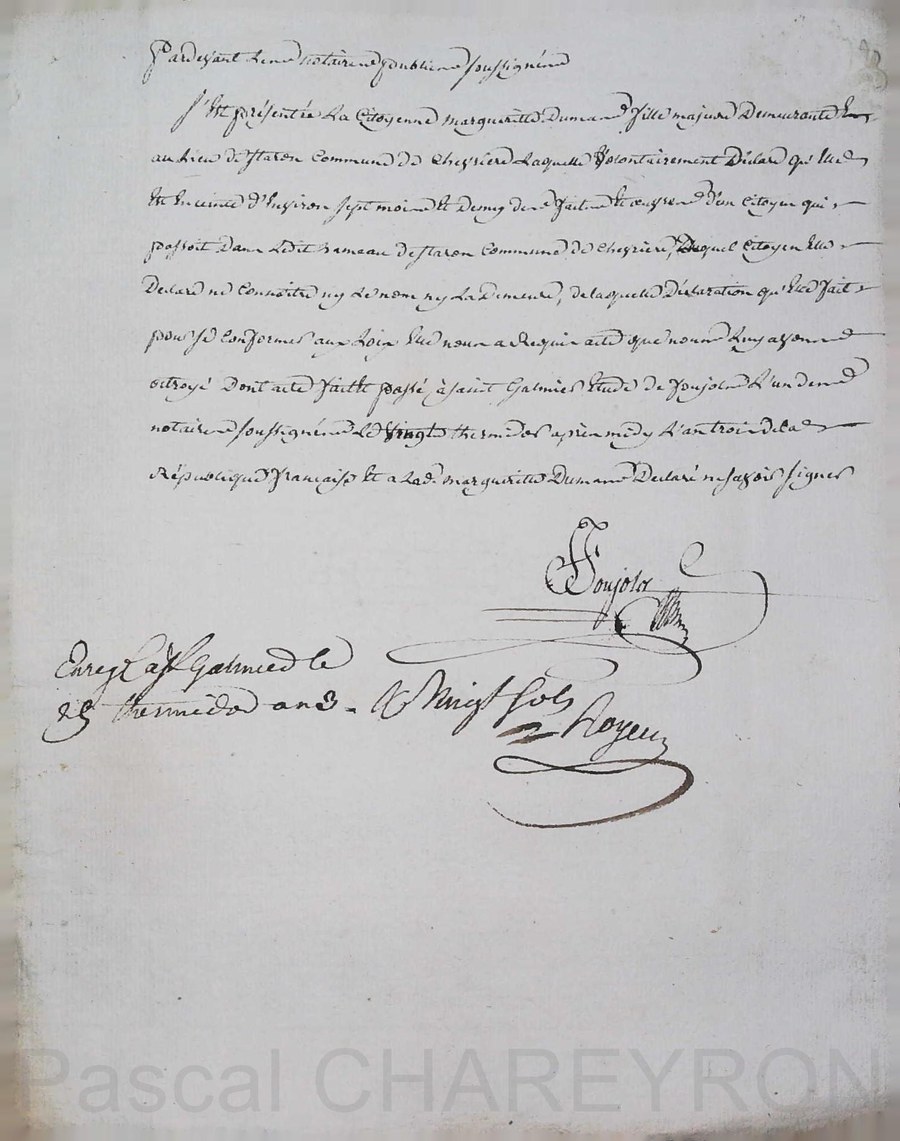 Pardevant les notaires publics soussignés
S'est présentée La Citoyenne margueritte Dumas fille majeure Demeurante
au lieu de staron Commune de Chevriere Laquelle volontairement Déclare qu'Elle
Est Enceinte d'Environ sept mois Et Demy des faits Et œuvres d'un Citoyen qui
passoit Dans Ledit hameau de staron Commune de Chevriere, Duquel Citoyen Elle
Declare ne Connoitre ny Le nom ny La demeure, de laquelle Déclaration qu'Elle fait
pour se Conformer aux Loix Elle nous a Requis acte que nous Luy avons
octroyé Dont acte fait Et passé à saint Galmier Etude de Poujol L'un des
notaires soussignés Le vingt thermidor après midy L'an trois de la
République française Et a Lade. margueritte Dumas Declaré ne savoir signer
Poujol
Enreg. à St Galmier le
thermidor an 3. R vingt sols
Royer
Pascal CHAREYRON